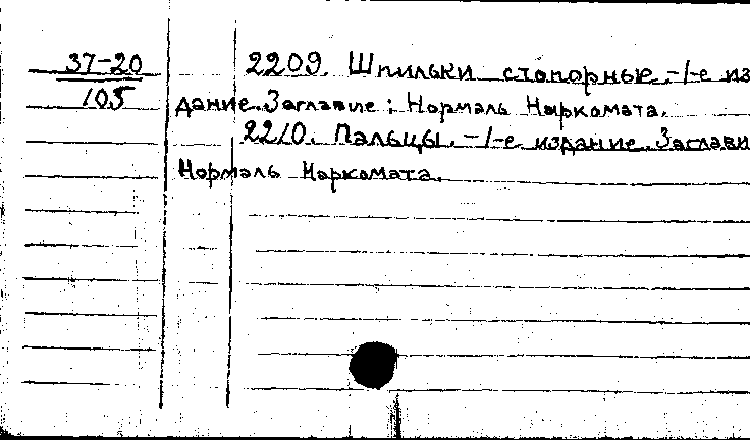 37-20
105
2209. Шпильки стопорные.-1-е из
дание. Заглавие: Нормаль Наркомата.
2210. Пальцы. -1-е издание. Заглави
Нормаль Наркомата.